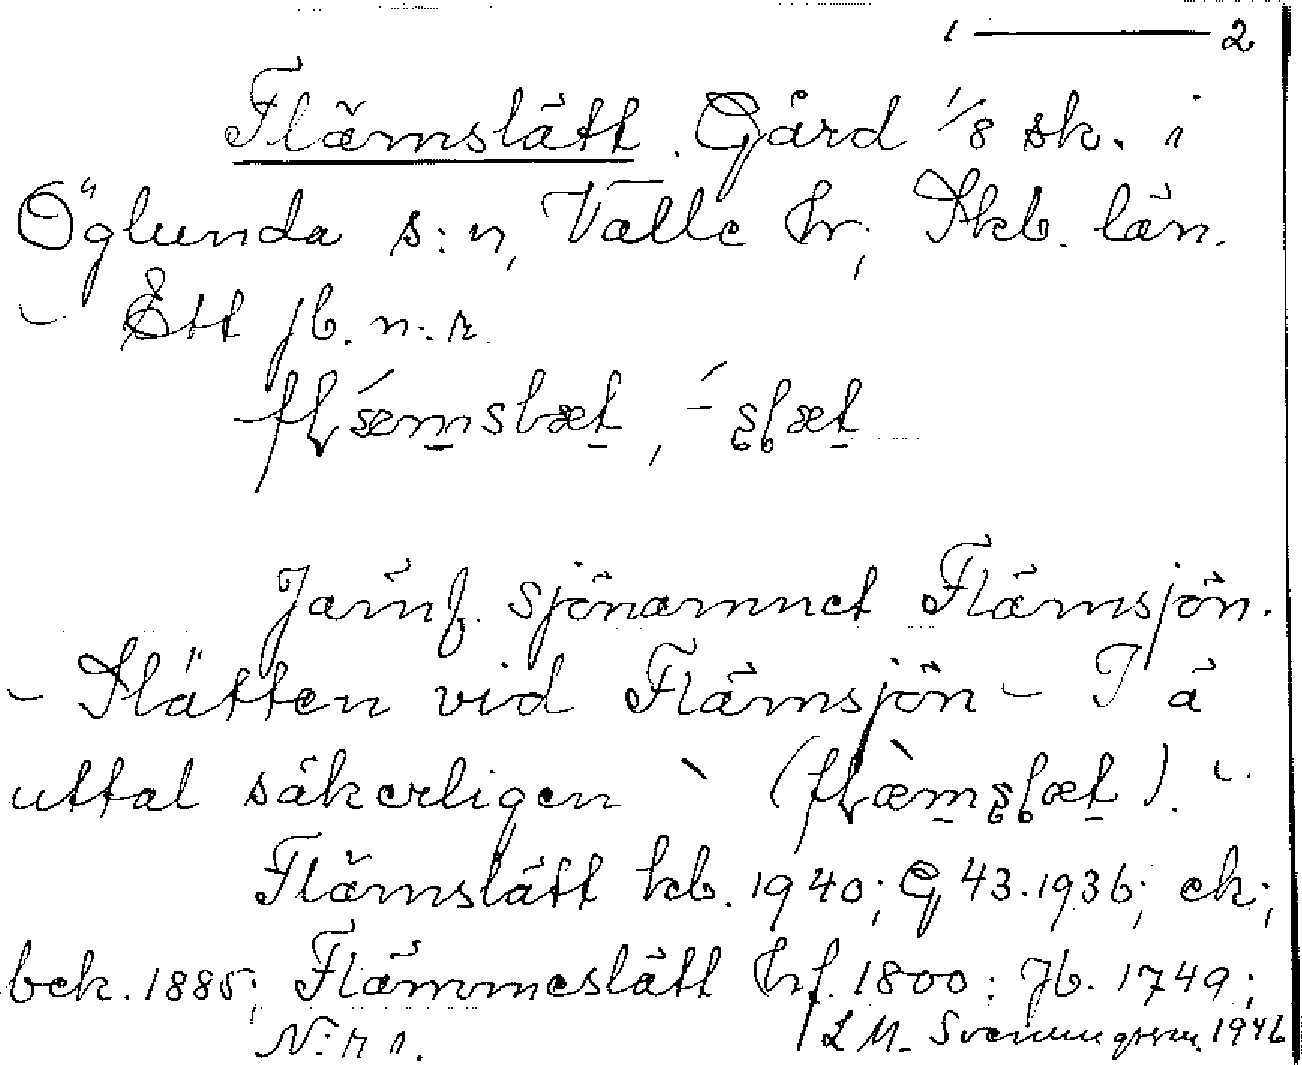 1 — 2
Flämslätt. Gård 1/8 sk. i
Öglunda s:n, Valle hr, Skb. län.
- Ett jb. n:r.
flæ´msłæt, -´słæt
Jämf. sjönamnet Flämsjön.
- Slätten vid Flämsjön - I ä
uttal säkerligen ` (flæ`msłæt). -
Flämslätt kb. 1940; G 43.1936; ek;
bek. 1885; Flämmeslätt hrf. 1800: Jb. 1749;
N:r 1. L M. Svenungsson. 1946